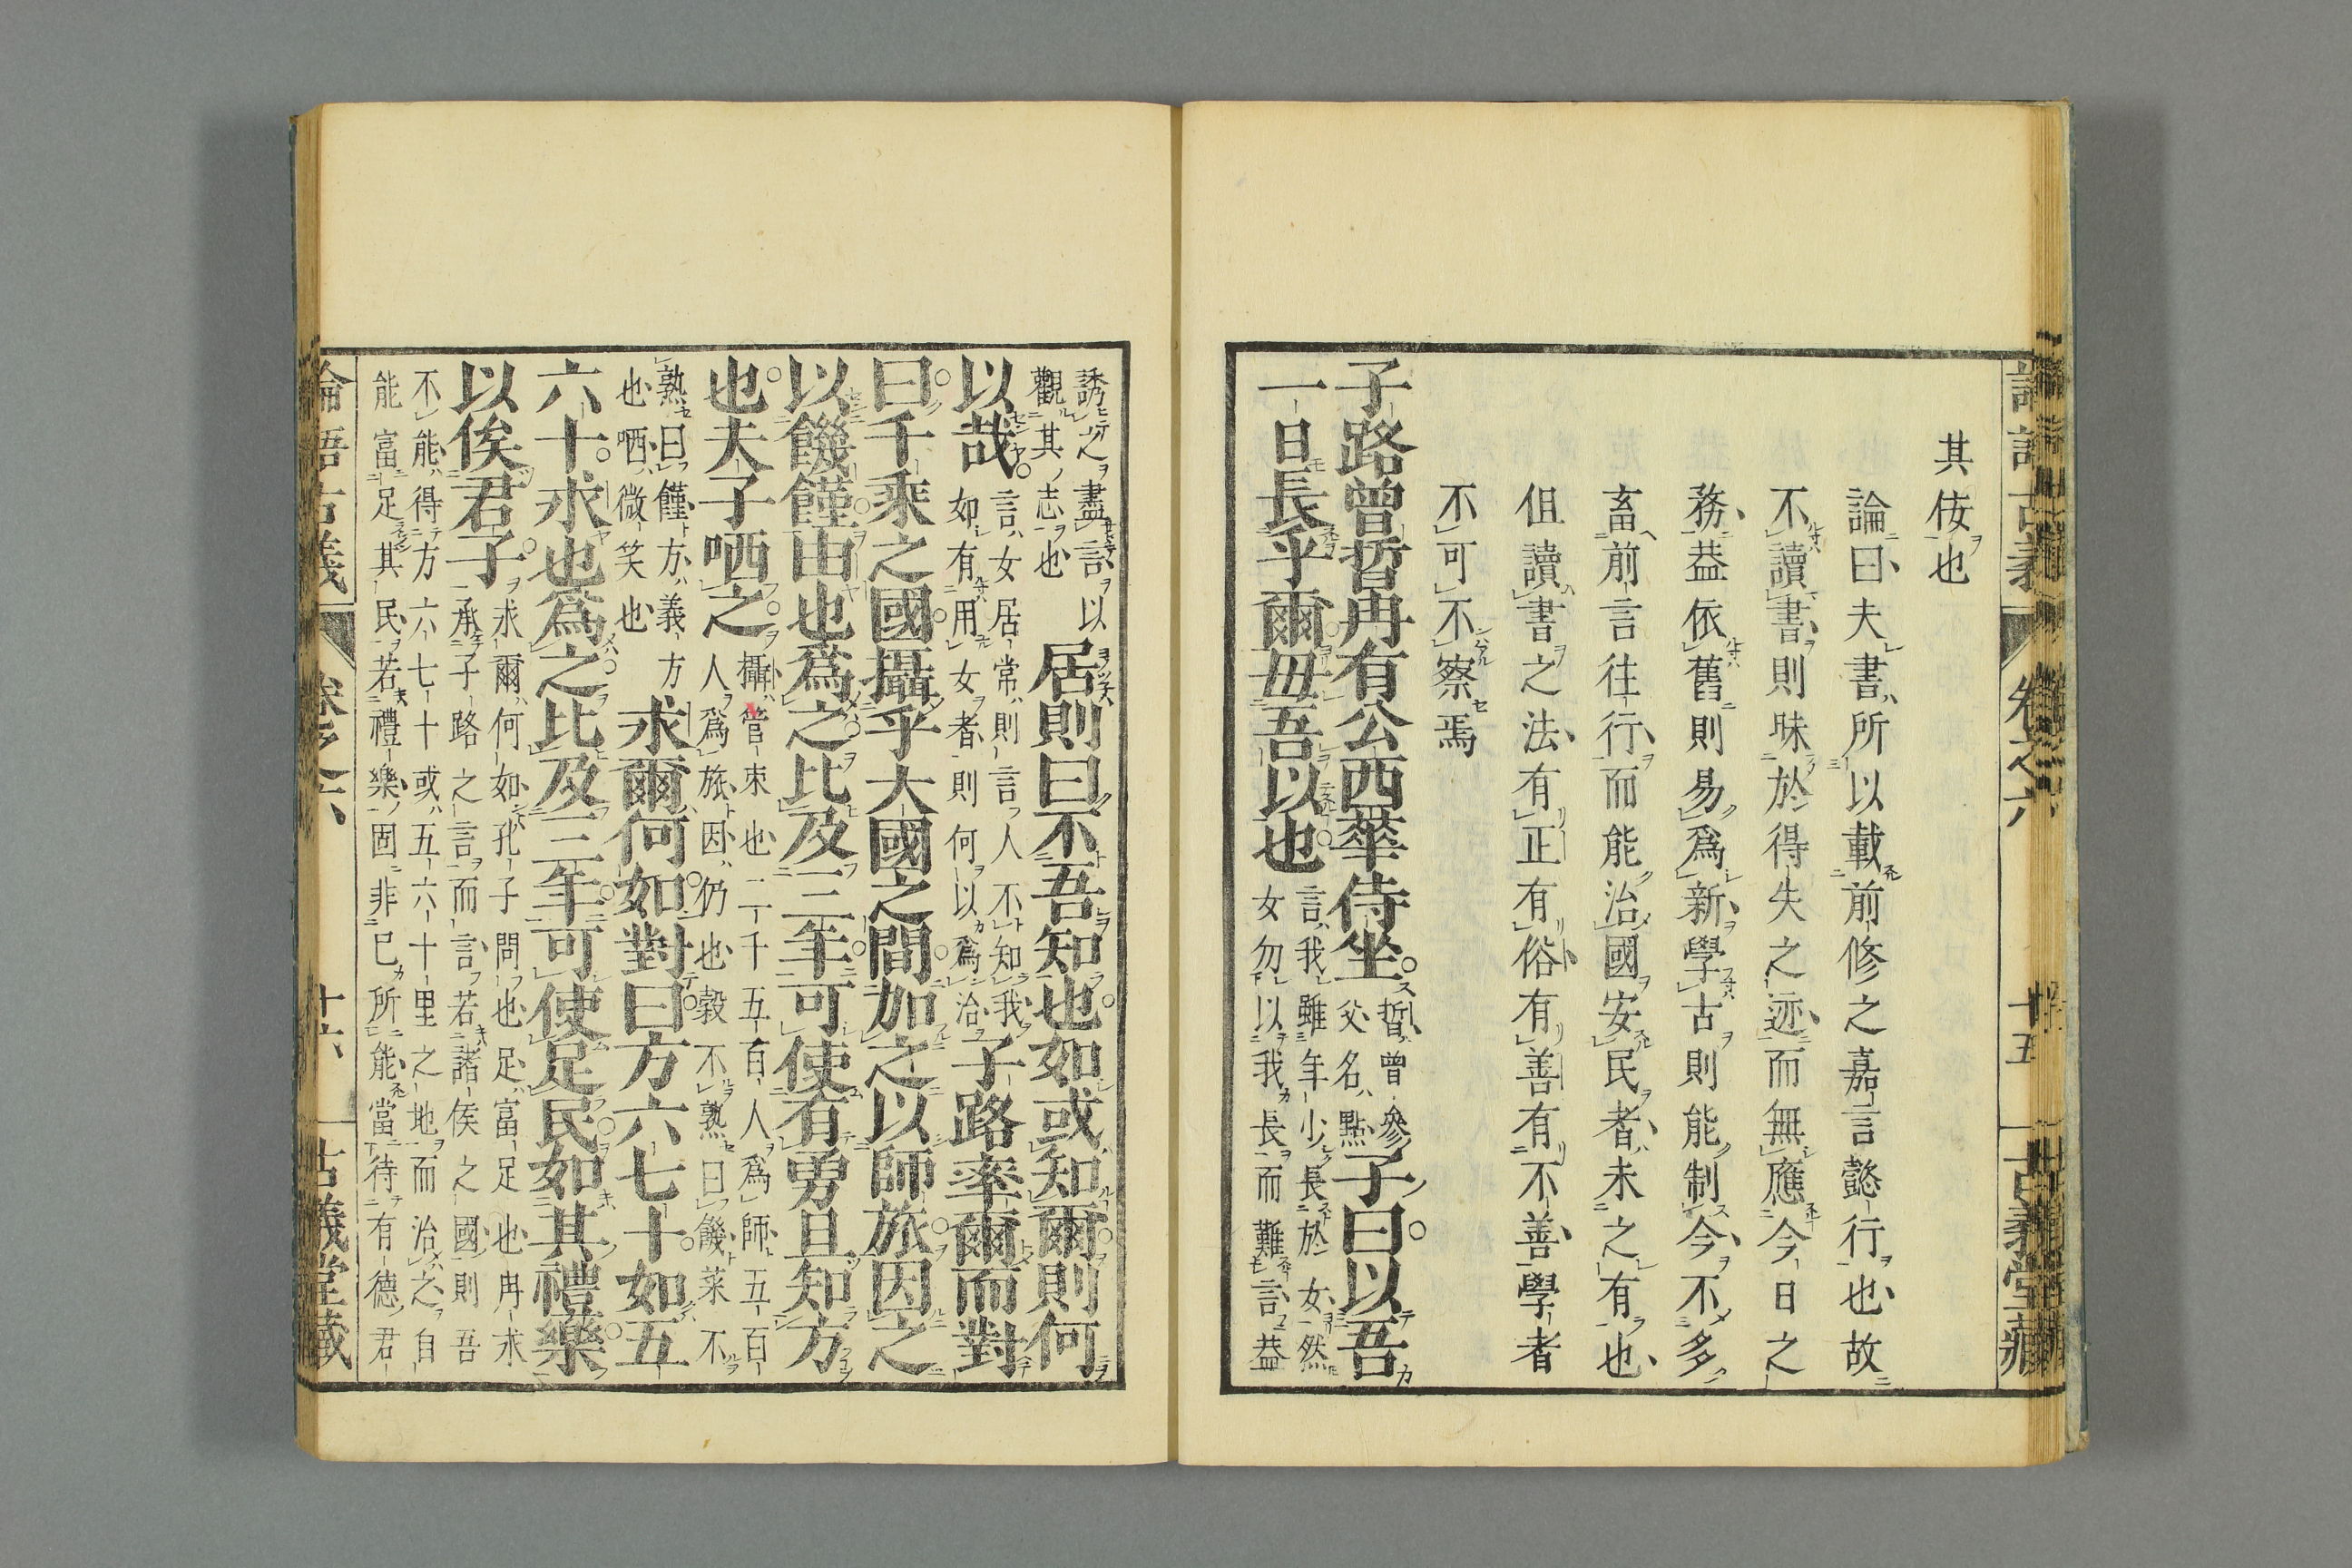 論語古義 卷之六 十五 古義堂藏
其佞也
論曰夫書所以載前修之嘉言懿行也故
不讀書則昧於得失之迹而無應今日之
務益依舊則易爲新學古則能制今不多
畜前言往行而能治國安民者未之有也
但讀書之法有正有俗有善有不善學者
不可不察焉
子路曾晳冉有公西華侍坐晳曾參父名點子曰以吾
一日長乎爾毋吾以也言我雖年少長於女然女勿以我長而難言蓋
誘之盡言以觀其志也居則曰不吾知也如或知爾則何
以哉言女居常則言人不知我如有用女者則何以爲治子路率爾而對
曰千乘之國攝乎大國之間加之以師旅因之
以饑饉由也爲之比及三年可使有勇且知方
也夫子哂之攝管束也二千五百人爲師五百人爲旅因仍也穀不熟曰饑菜不
熟曰饉方義方也哂微笑也求爾何如對曰方六七十如五
六十求也爲之比及三年可使足民如其禮樂
以俟君子求爾何如孔子問也足富足也冉求承子路之言而言若諸侯之國則吾
不能得方六七十或五六十里之地而治之自能富足其民若禮樂固非已所能當待有德君
論語古義 卷之六 十六 古義堂藏